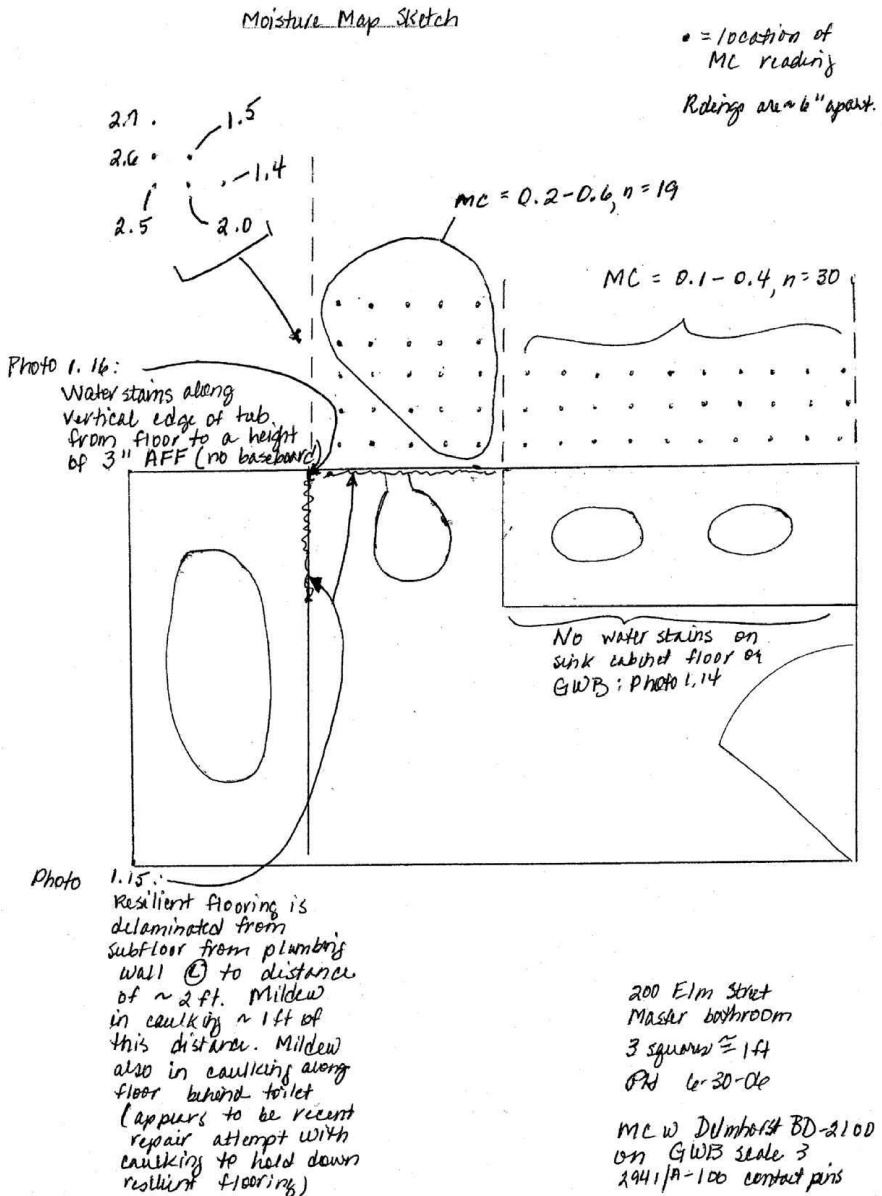 Moisture Map Sketch
• = location of
MC reading
Rdings are ~ 6" apart.
2.7
1.5
2.6
1.4
2.5
2.0
MC = 0.2-0.6, n = 19
MC = 0.1-0.4, n = 30
Photo 1.16:
Water stains along
vertical edge of tub
from floor to a height
of 3" AFF (no baseboard)
No water stains on
sink cabinet floor or
GWB: Photo 1.14
Photo 1.15:
Resilient flooring is
delaminated from
subfloor from plumbing
wall to distance
of ~ 2 ft. Mildew
in caulking ~ 1 ft of
this distance. Mildew
also in caulking along
floor behind toilet
(appears to be recent
repair attempt with
caulking to hold down
resilient flooring)
200 Elm Street
Master bathroom
3 squares ≅ 1 ft
6-30-06
MC w Delmhorst BD-2100
on GWB scale 3
2941/A-100 contact pins